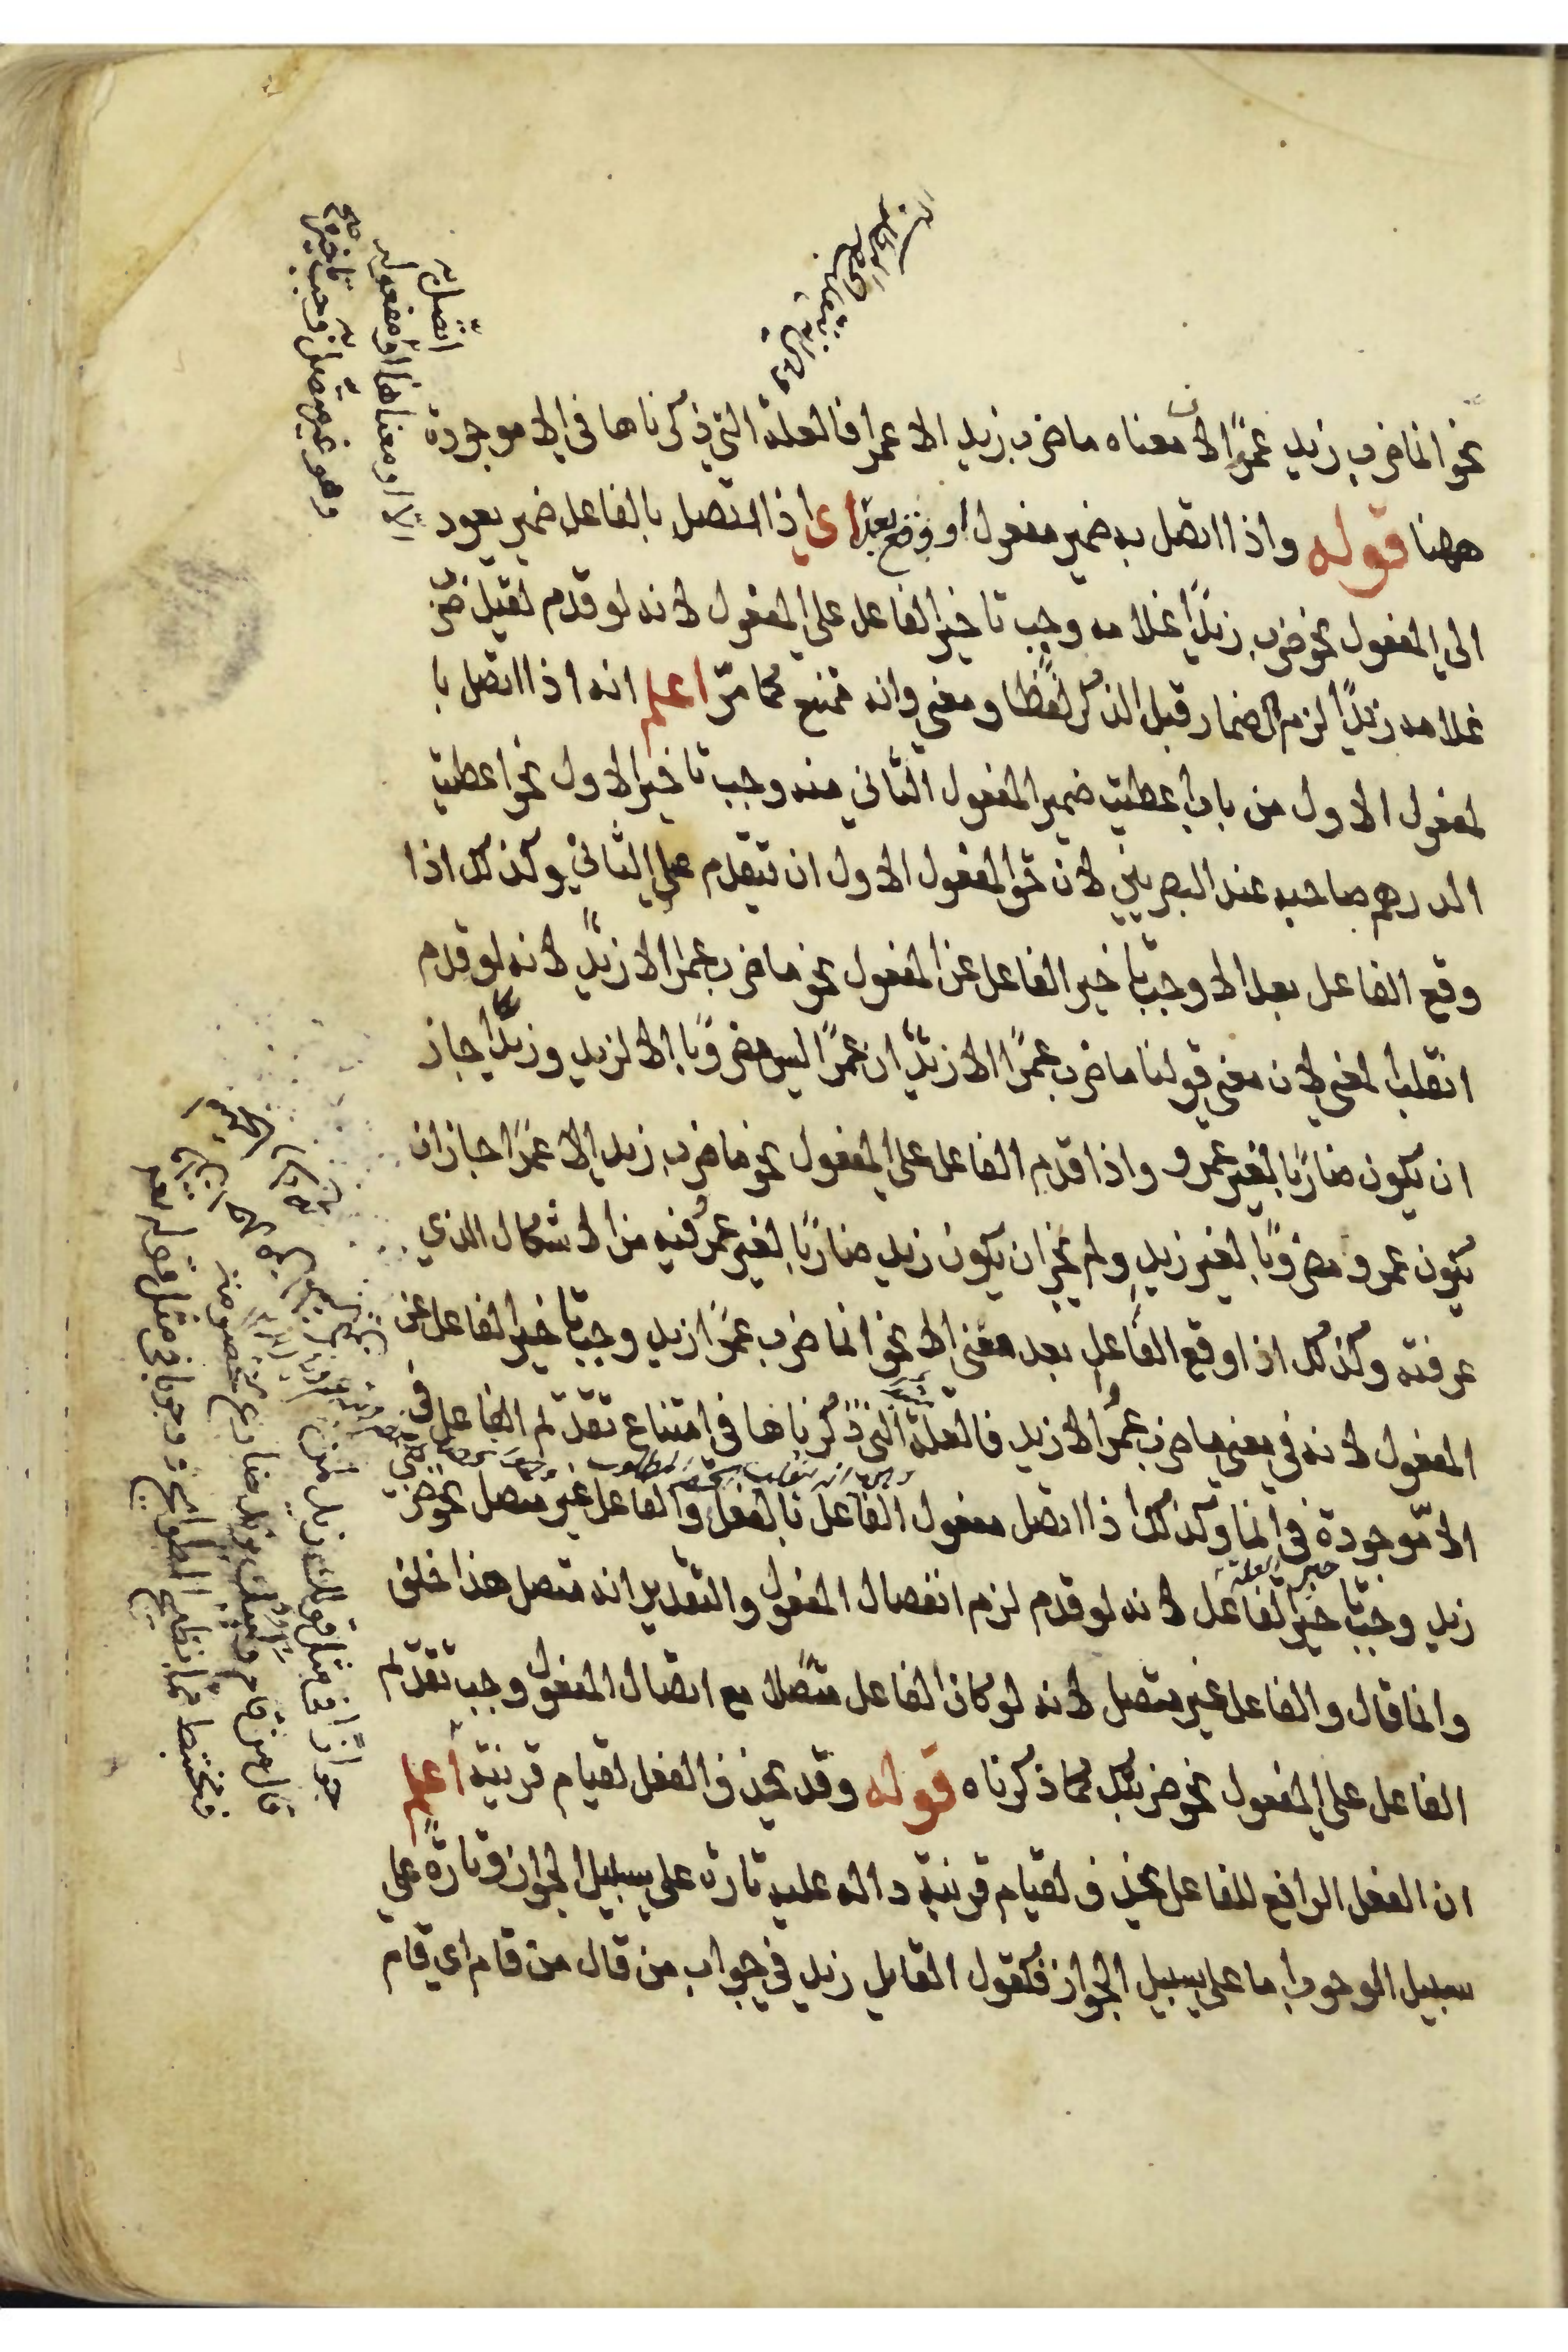 نحو انما ضرب زيد عمرًا لان معناه ما ضرب زيد الا عمرا فالعلة التي ذكرناها في الا موجودة
ههنا قوله واذا اتصل به ضمير مفعول او وقع بعد اي اذا اتصل بالفاعل ضمير يعود
الى المفعول نحو ضرب زيدًا غلامه وجب تاخير الفاعل على المفعول لانه لو قدم لقيل ضرب
غلامه زيدًا لزم الاضمار قبل الذكر لفظًا ومعنى وانه ممتنع كما مرّ اعلم انه اذا اتصل با
لمفعول الاول من باب اعطيت ضمير المفعول الثاني منه وجب تاخير الاول نحو اعطيت
الدرهم صاحبه عند البصريين لان حق المفعول الاول ان يتقدم على الثاني وكذلك اذا
وقع الفاعل بعد الا وجب تاخير الفاعل عن المفعول نحو ما ضرب عمرا الا زيدٌ لانه لو قدم
انقلب المعنى لان معنى قولنا ما ضرب عمرًا الا زيدٌ ان عمرًا ليس مضروبًا الا لزيد وزيدًا جاز
ان يكون ضاربًا لغير عمرو واذا قدم الفاعل على المفعول نحو ما ضرب زيد الا عمرًا جاز ان
يكون عمرو مضروبًا لغير زيدٍ ولم يجز ان يكون زيد ضاربًا لغير عمرو فيه من الاشكال الذي
عرفته وكذلك اذا وقع الفاعل بعد معنى الا نحو انما ضرب عمرًا زيد وجب تاخير الفاعل عن
المفعول لانه في معنى ما ضرب عمرًا الا زيد فالعلة التي ذكرناها في امتناع تقدم الفاعل في
الا موجودة في انما وكذلك اذا اتصل مفعول الفاعل بالفعل والفاعل غير متصل نحو ضربك
زيد وجب تاخير الفاعل لانه لو قدم لزم انفصال المفعول والتقدير انه متصل هذا خلف
وانما قال والفاعل غير متصل لانه لو كان الفاعل متصلا مع اتصال المفعول وجب تقدم
الفاعل على المفعول نحو ضربتك كما ذكرناه قوله وقد يحذف الفعل لقيام قرينة اعلم
ان الفعل الرافع للفاعل يحذف لقيام قرينة دالة عليه تارة على سبيل الجواز وتارة على
سبيل الوجوب اما على سبيل الجواز فكقول القايل زيد في جواب من قال من قام اي قام
اتصل به
الا او معناها او مفعوله
وهو غير متصل وجب تاخيره
جوازًا في مثل قولك زيد لمن
قال من قام وليبك يزيد ضارع لخصومة
ومختبط مما تطيح الطوايح ووجوبا في مثل قوله تعم